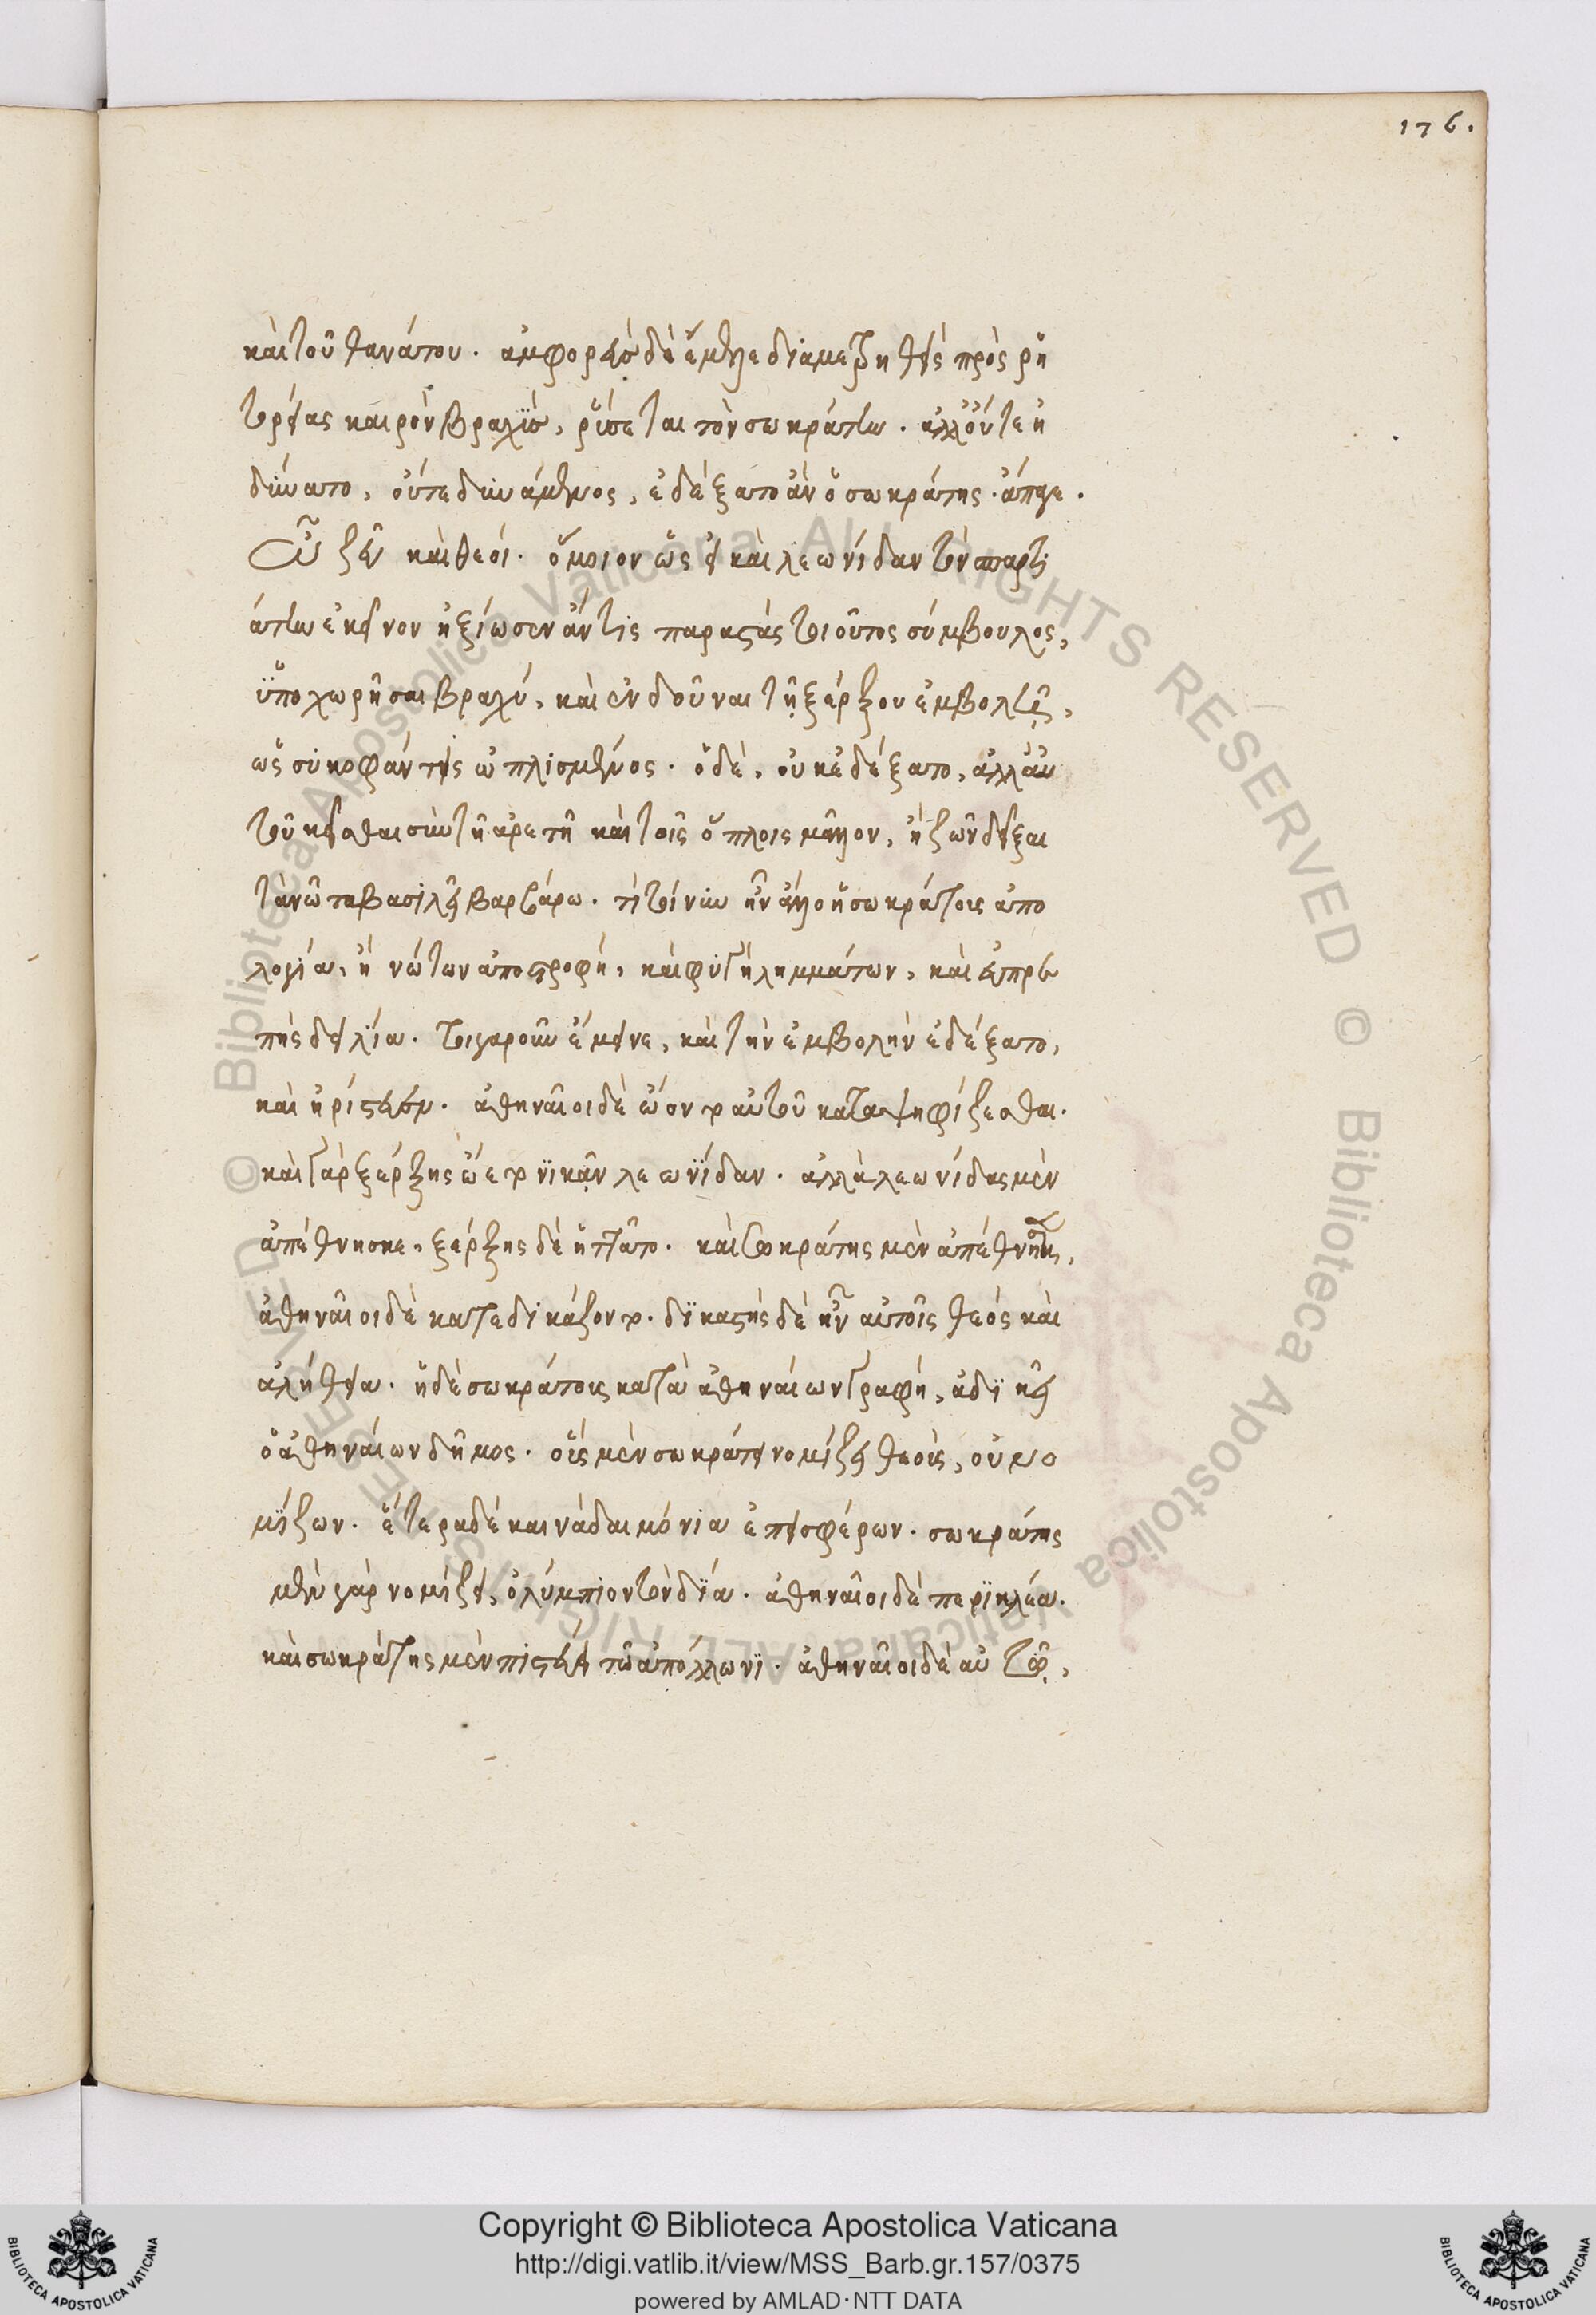 176.
καὶ τοῦ θανάτου. ἀμφορεὺς δὲ ἔμελλε διαμετρηθεὶς πρὸς ῥή
τορείας καιρὸν βραχὺς, ῥύσεται τὸν σωκράτην. ἀλλ' οὔτε ἠ
δύνατο, οὔτε δυνάμενος, ἐδέξατο ἂν ὁ σωκράτης. ἄπαγε.
Ὦ ζεῦ καὶ θεοί. ὅμοιον ὡς εἰ καὶ λεωνίδαν τὸν σπαρτι
άτην ἐκεῖνον ἠξίωσεν ἄν τις παραστὰς τοιοῦτος σύμβουλος,
ὑποχωρῆσαι βραχύ, καὶ ἐνδοῦναι τῇ ξέρξου ἐμβολῇ,
ὡς συκοφάντης ὡπλισμένος. ὁ δὲ, οὐκ ἐδέξατο, ἀλλ' αὐ
τοῦ κεῖσθαι σὺν τῇ ἀρετῇ καὶ τοῖς ὅπλοις μᾶλλον, ἢ ζῶν δεῖξαι
τὰ νῶτα βασιλεῖ βαρβάρῳ. τί τοίνυν ἦν ἄλλο ἡ σωκράτους ἀπο
λογία, ἢ νώτων ἀποστροφή, καὶ φυγὴ λημμάτων, καὶ εὐπρε
πὴς δειλία. τοιγαροῦν ἔμεινε, καὶ τὴν ἐμβολὴν ἐδέξατο,
καὶ ἠρίστευσεν. ἀθηναῖοι δὲ ᾤοντο αὐτοῦ καταψηφίζεσθαι.
καὶ γὰρ ξέρξης ᾤετο νικᾶν λεωνίδαν. ἀλλὰ λεωνίδας μὲν
ἀπέθνησκε, ξέρξης δὲ ἡττᾶτο. καὶ σωκράτης μὲν ἀπέθνησκε,
ἀθηναῖοι δὲ κατεδικάζοντο. δικαστὴς δὲ ἦν αὐτοῖς θεὸς καὶ
ἀλήθεια. ἡ δὲ σωκράτους κατὰ ἀθηναίων γραφή, ἀδικεῖ
ὁ ἀθηναίων δῆμος. οὓς μὲν σωκράτης νομίζει θεοὺς, οὐ νο
μίζων. ἕτερα δὲ καινὰ δαιμόνια ἐπεισφέρων. σωκράτης
μὲν γὰρ νομίζει, ὀλύμπιον τὸν δία. ἀθηναῖοι δὲ περικλέα.
καὶ σωκράτης μὲν πιστεύει τῷ ἀπόλλωνι. ἀθηναῖοι δὲ αὐτῷ,
Copyright © Biblioteca Apostolica Vaticana
http://digi.vatlib.it/view/MSS_Barb.gr.157/0375
powered by AMLAD·NTT DATA